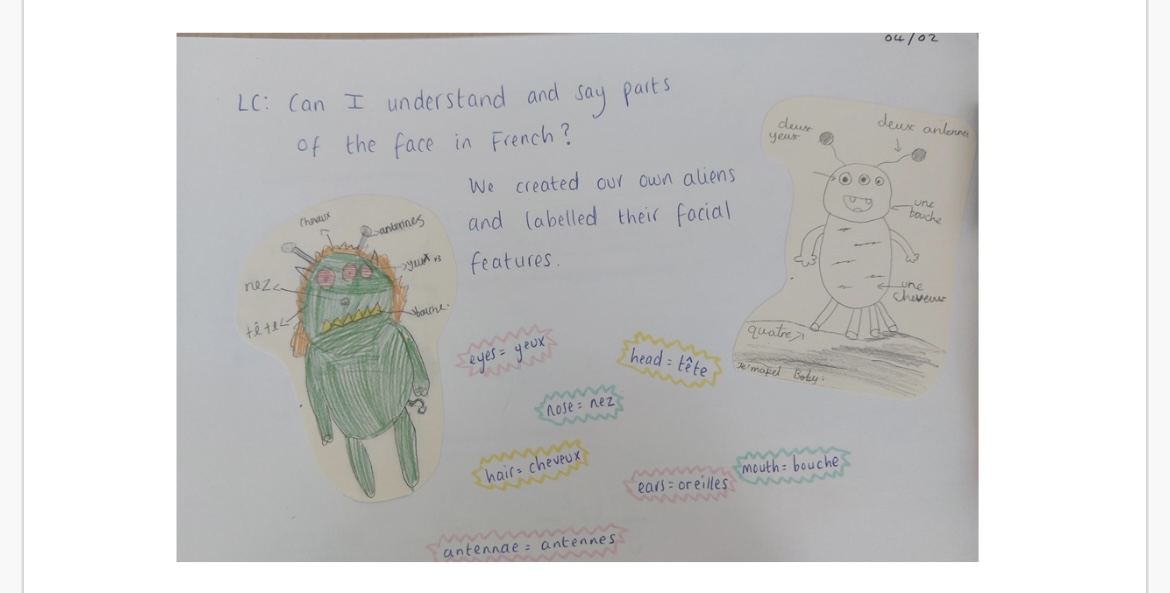 04/02
LC: Can I understand and say parts
of the face in French?
We created our own aliens
and labelled their facial
features.
cheveux
antennes
yeux
nez
tête
bouche.
deux
yeux
deux antenne
une
bouche
une
cheveux
quatre
Je Boby.
eyes = yeux
head = tête
nose = nez
hair = cheveux
mouth = bouche
ears = oreilles
antennae = antennes